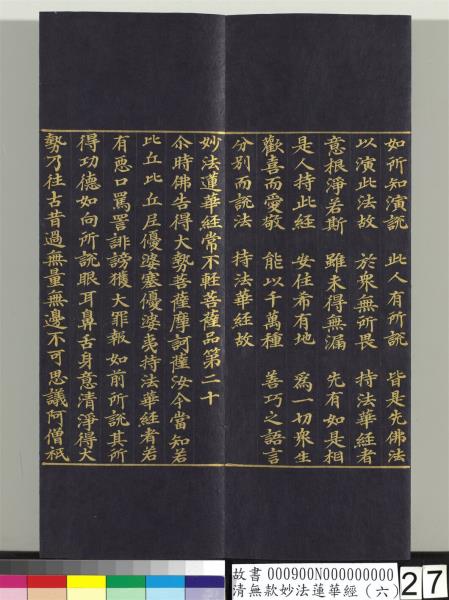 如所知演說　此人有所說　皆是先佛法
以演此法故　於衆無所畏　持法華經者
意根淨若斯　雖未得無漏　先有如是相
是人持此經　安住希有地　爲一切衆生
歡喜而愛敬　能以千萬種　善巧之語言
分別而說法　持法華經故
妙法蓮華經常不軽菩薩品第二十
尒時佛告得大勢菩薩摩訶薩汝今當知若
比丘比丘尼優婆塞優婆夷持法華經者若
有惡口罵詈誹謗獲大罪報如前所說其所
得功德如向所說眼耳鼻舌身意清淨得大
勢乃往古昔過無量無邊不可思議阿僧祇
故書 000900N000000000
清無款妙法蓮華經（六）
27